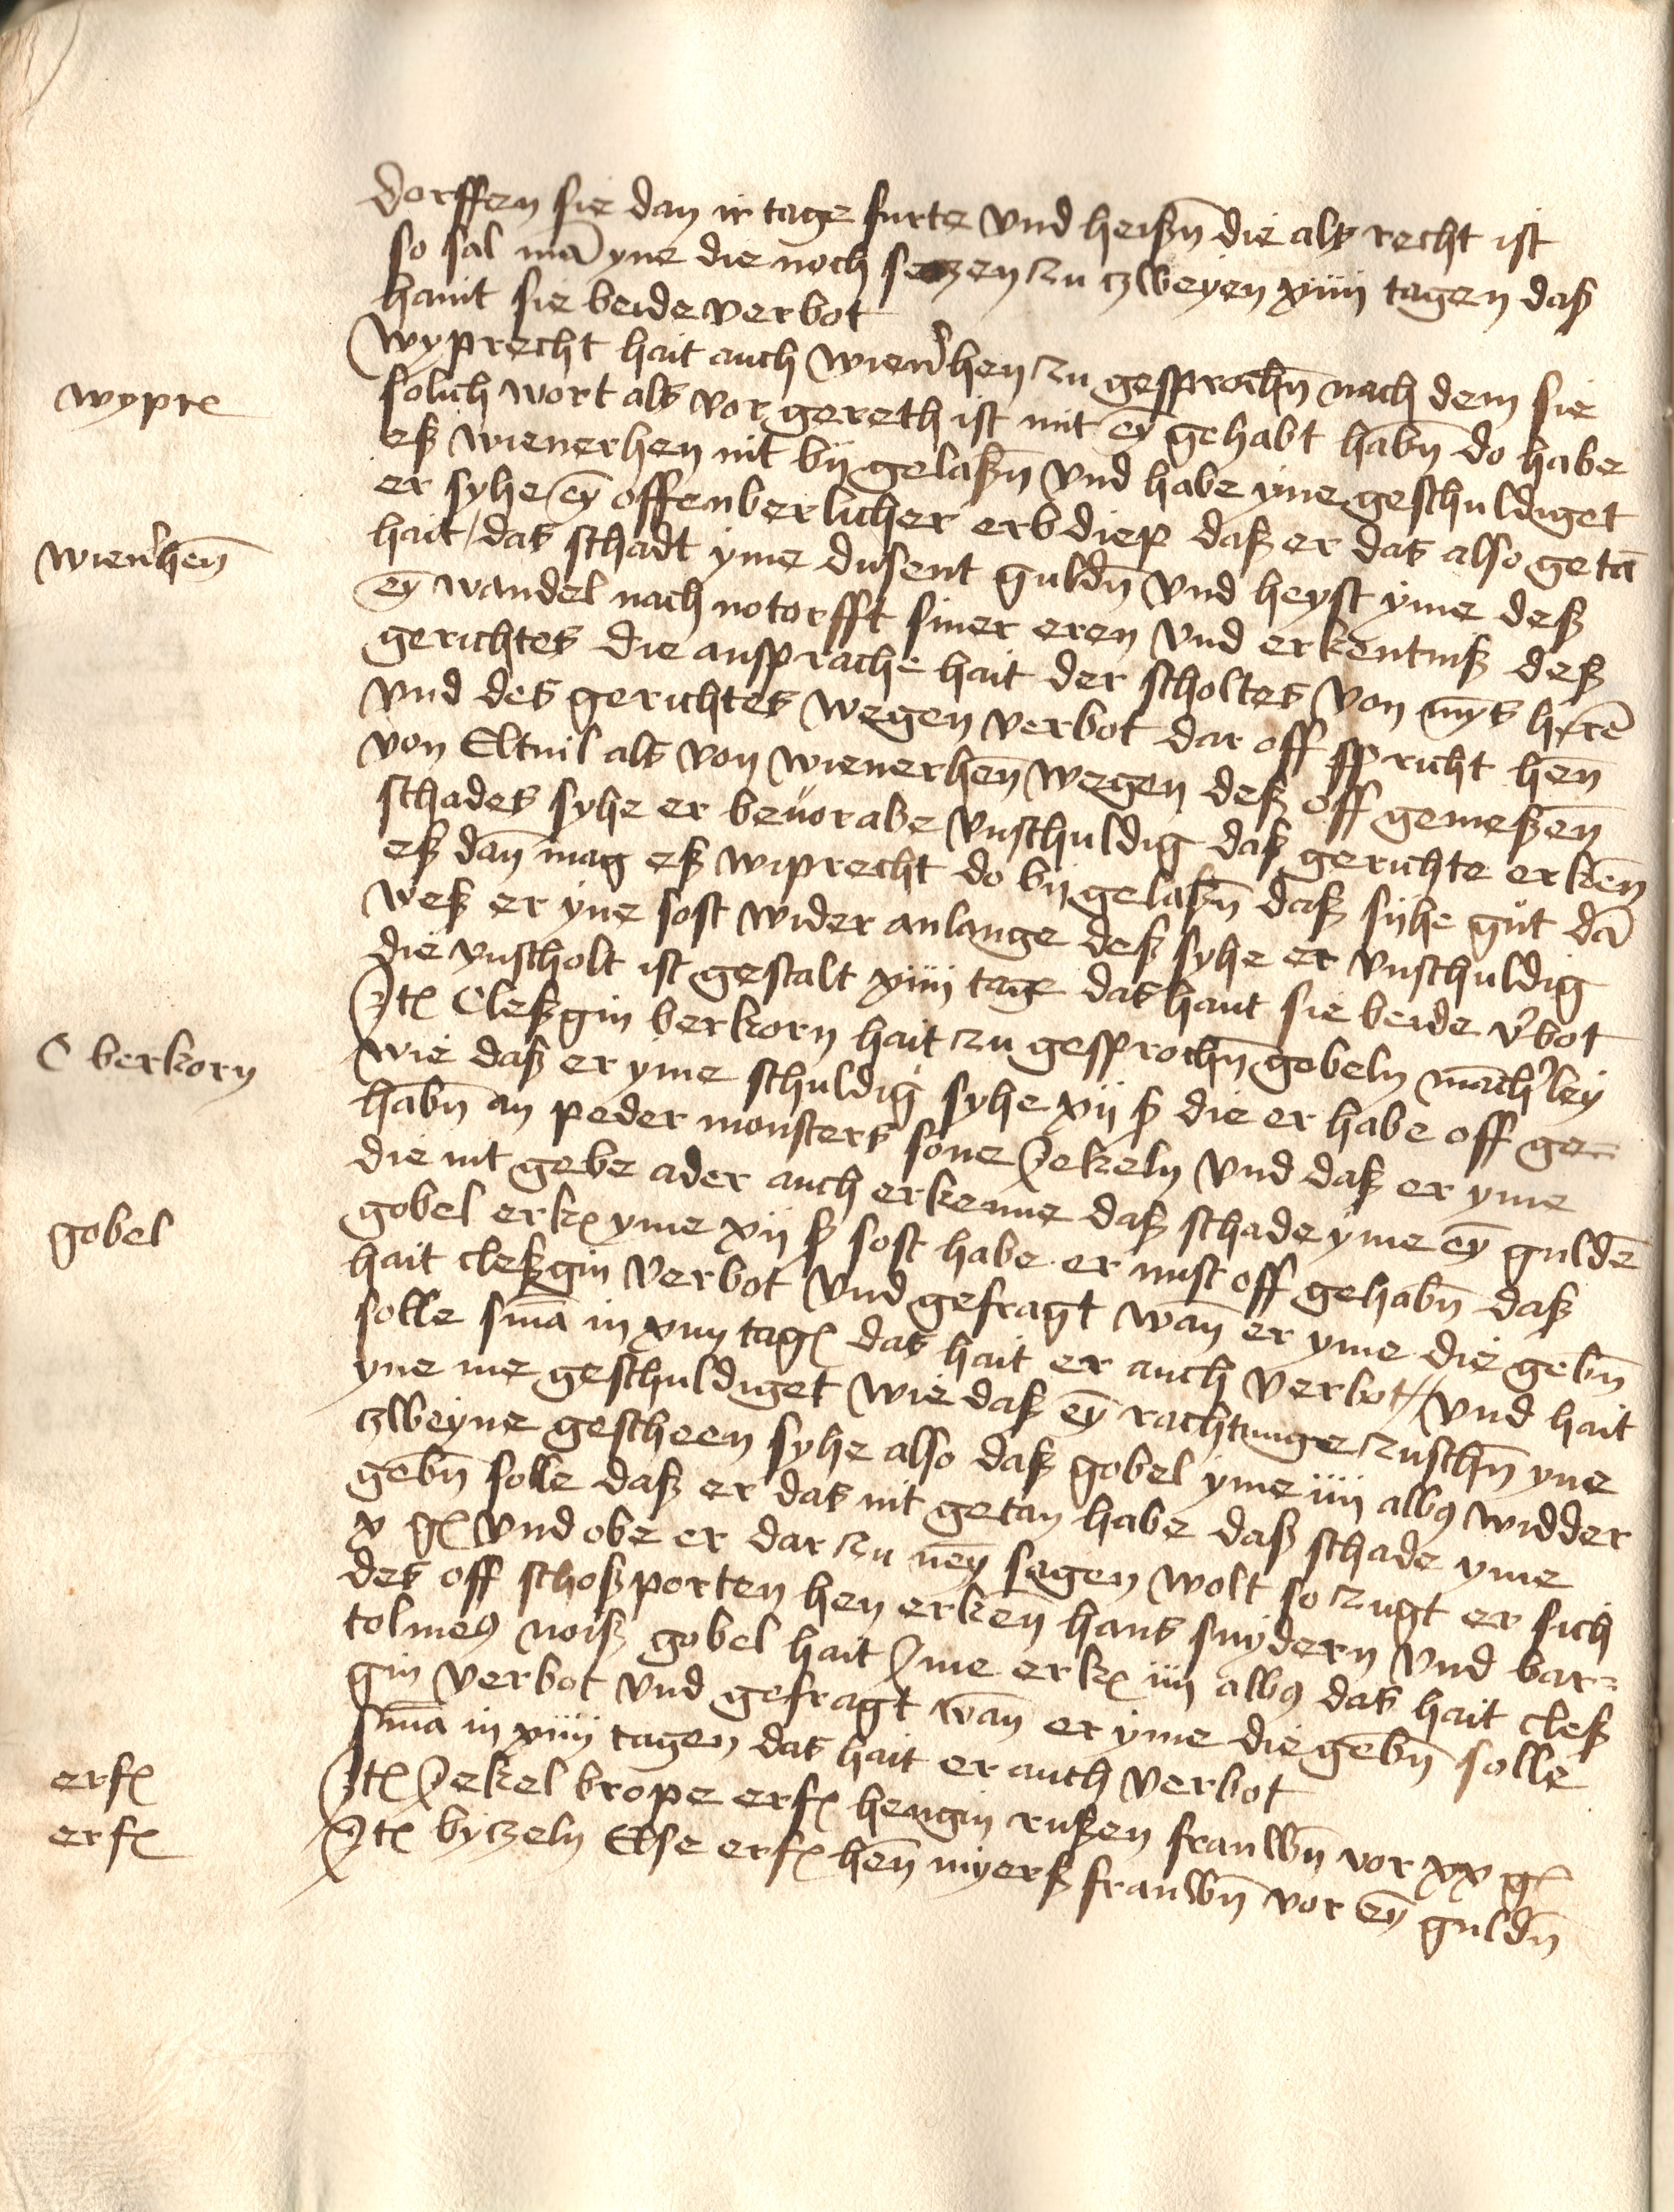 dorffen sie dan ir tage furte vnd heisßn̄ die als recht ist
so sal mā yne die noch setzen zu zweyen xiiij tagen daß
hant sie beide verbot
wypre
Wyprecht hait auch wien̾hen zu gesprochn̄ nach dem sie
solich wort als vor gereth ist mit eȳ gehabt habn̄ do habe
eß wienerhen nit by gelaßn̄ vnd habe yne geschuldiget
er syhe eȳ offenberlicher erbdiep daß er das also getā
wien̾hen̄
hait / das schadt yme dusent guldn̄ vnd heyst yme deß
eȳ wandel nach notorfft siner eren vnd erkentniß deß
gerichtes die ansprache hait der scholtes von mȳs h̄rē
vnd des gerichtes wegen verbot dar off spricht hen̄
von Eltuil als von wienerhen̄ wegen deß off gemeßen̄
schades syhe er beuor abe vnschuldig daß gerichte erken̄
eß dan̄ mag eß wiprecht do by gelaßn̄ daß syhe gut dā
weß er yne sost wider anlange deß syhe er vnschuldig
die vnscholt ist gestalt xiiij tage das hant sie beide v̾bot
C berkorn
Jt̄ Cleßgin berkorn hait zu gesprochn̄ gobeln mach̾ley
wie daß er yme schuldig syhe xij ß die er habe off ge-
habn̄ an peder monsters sone Jekeln vnd daß er yme
die nit gebe ader auch erkenne daß schade yme eȳ guldē
gobel
gobel erk̄ yme xij ß sost habe er nust off gehabn̄ daß
hait cleßgin verbot vnd gefragt wan̄ er yme die gebn̄
solle sma in xiiij taḡ das hait er auch verbot // vnd hait
yne me geschuldiget wie daß eȳ rachtunge zuschn̄ yne
zweyne gescheen syhe also daß gobel yme iiij albꝯ widder
gebn̄ solle daß er das nit getan habe daß schade yme
x ḡ vnd obe er dar zu neȳ sagen wolt so zugt er sich
des off schoßporten hen erken̄ hans snydern vnd bar=
tolmeꝯ noiß gobel hait Jme erk̄ iiij albꝯ das hait cleß
gin verbot vnd gefragt wan̄ er yme die gebn̄ solle
sma in xiiij tagen das hait er auch verbot
erf̄
Jt̄ Jekel krope erf̄ hengin rußen frauwn̄ vor xx ḡ
erf̄
Jt̄ byczeln Else erf̄ hen̄ myerß frauwn̄ vor eȳ guldn̄